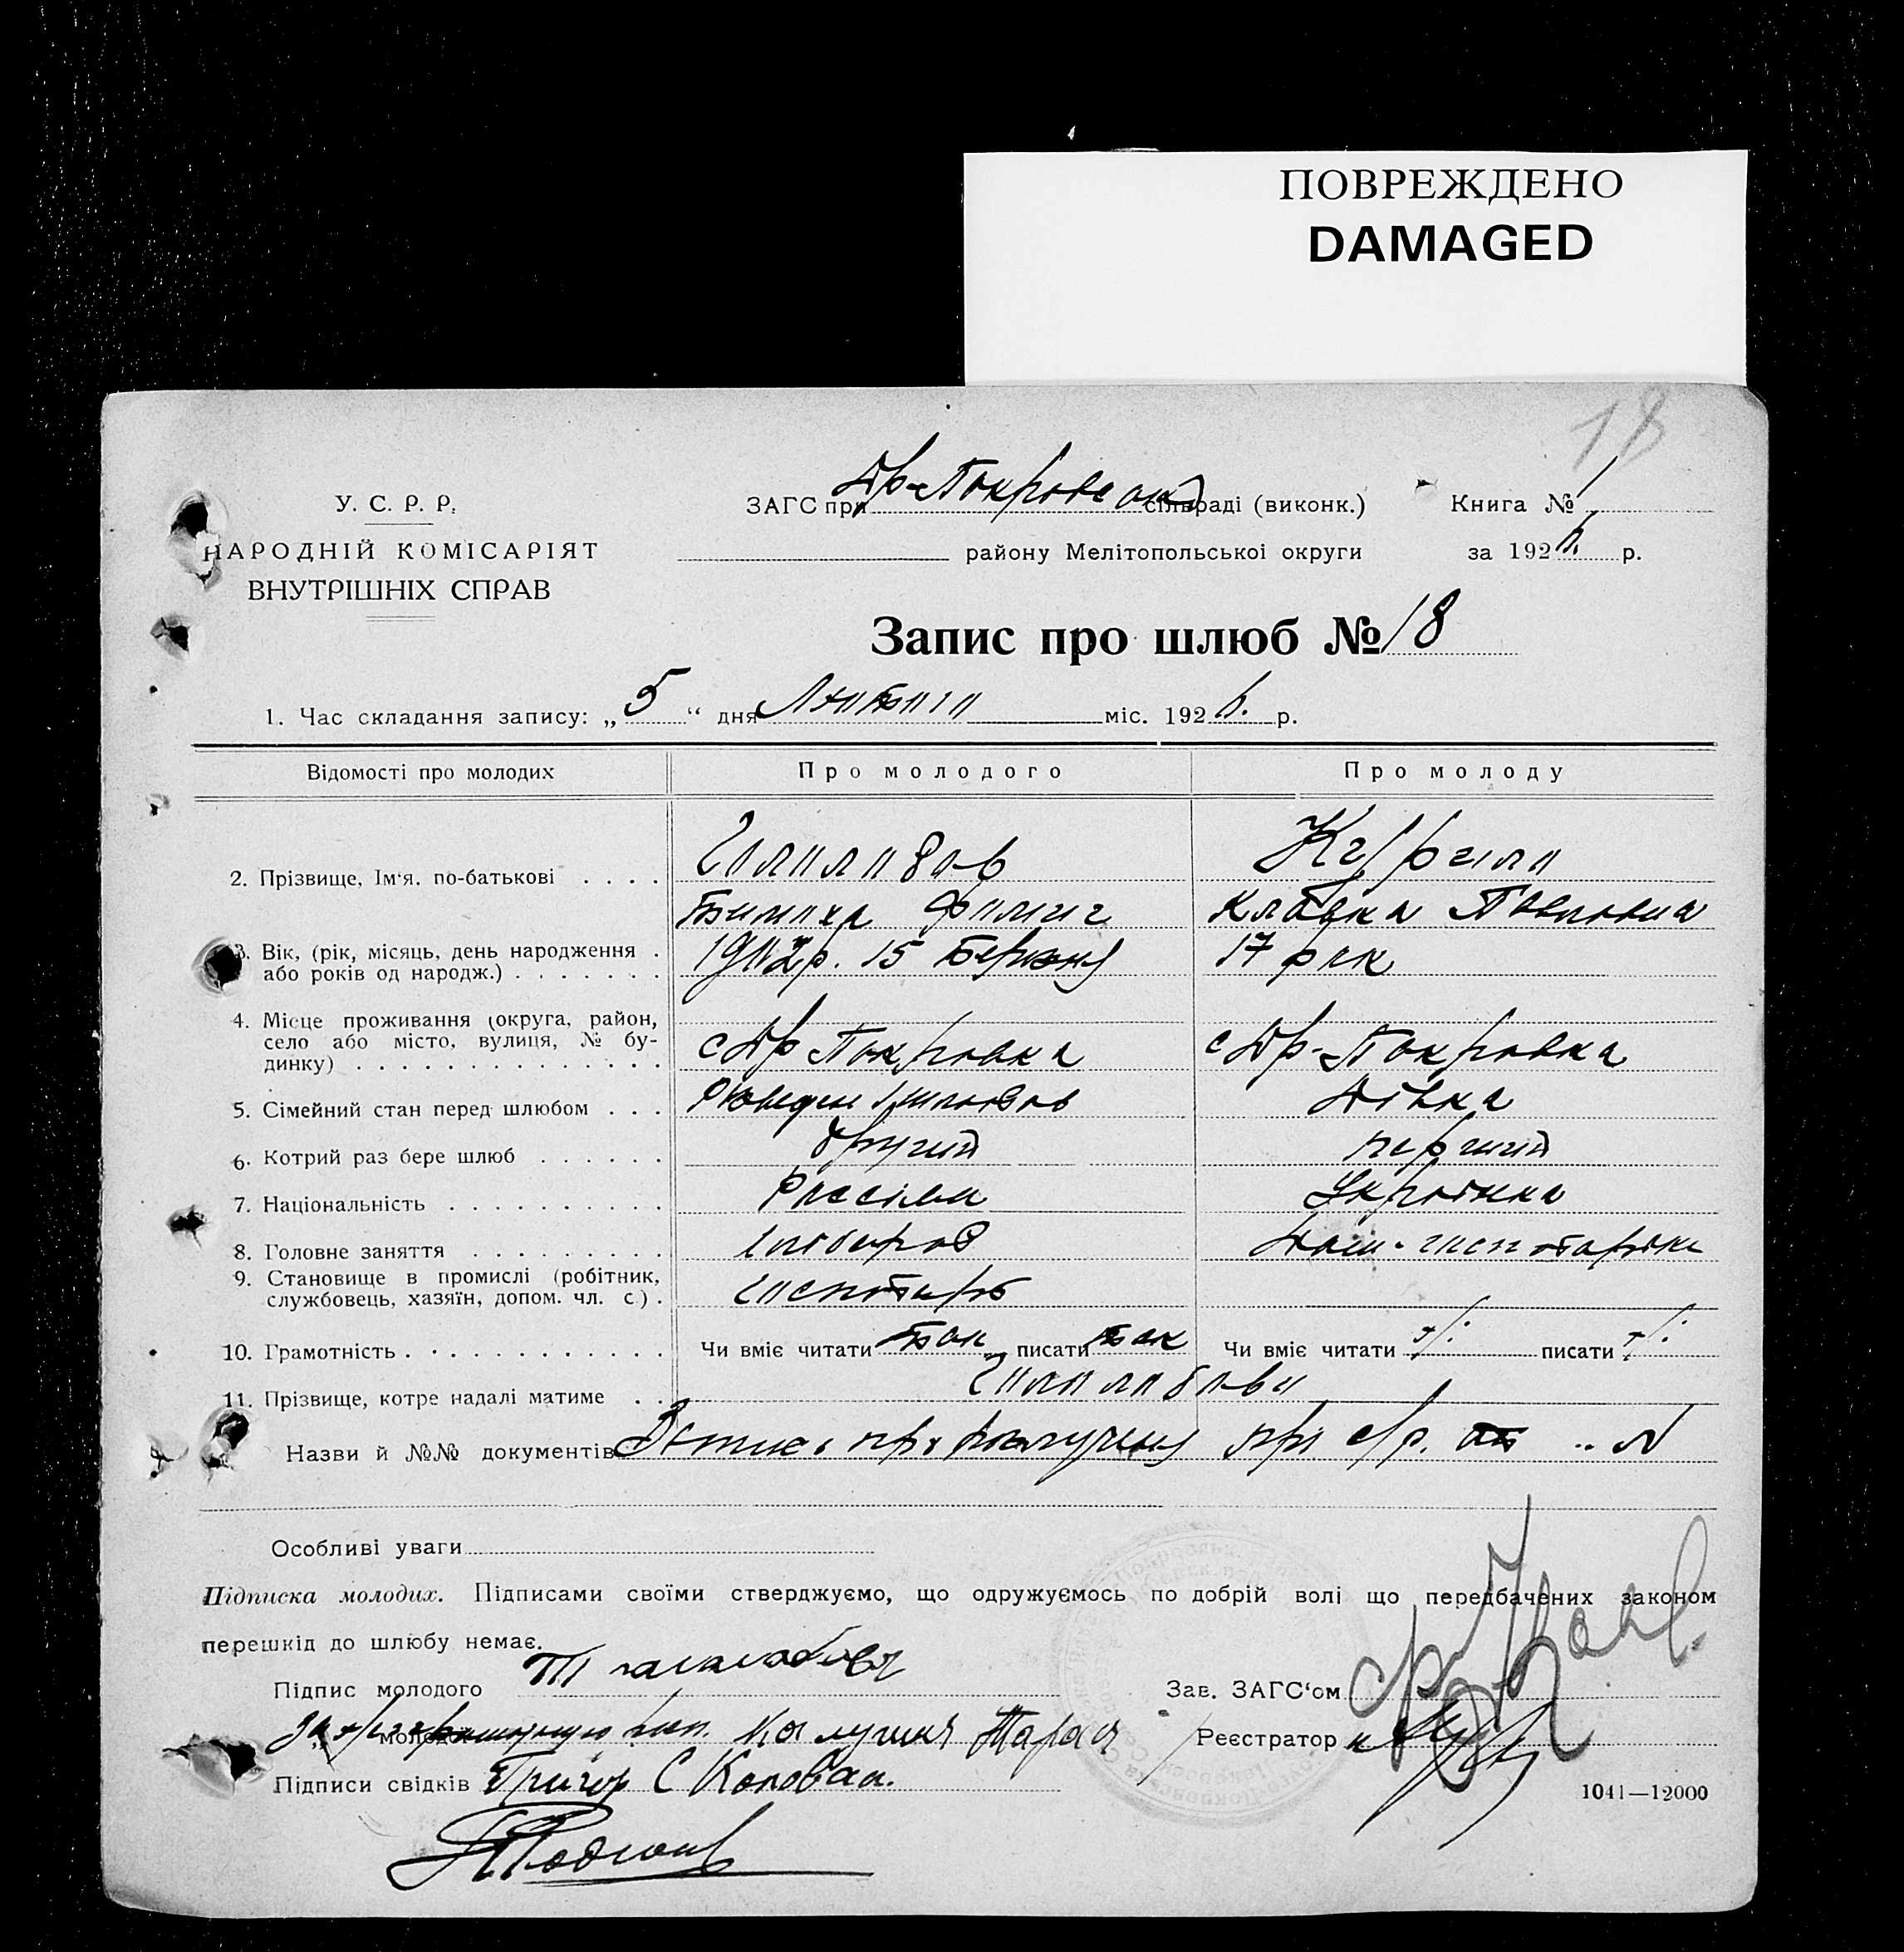 ПОВРЕЖДЕНО
DAMAGED
18
У. С. Р. Р.
НАРОДНІЙ КОМІСАРІЯТ
ВНУТРІШНІХ СПРАВ
ЗАГС при Др-Покровскій сільраді (виконк.)
Книга № 1
району Мелітопольської округи
за 1926 р.
Запис про шлюб № 18
1. Час складання запису: „5“ дня Лютого міс. 1926. р.
Відомості про молодих Про молодого Про молоду
2. Прізвище, Ім‘я, по-батькові . . . .
Тимоха
Клавдка Павловна
3. Вік, (рік, місяць, день народження .
або років од народж.) . . . . . . .
р. 15 Березня 17 рок
4. Місце проживання (округа, район,
село або місто, вулиця, № бу-
динку) . . . . . . . . . . . . . .
с Др Покровка с Др-Покровка
5. Сімейний стан перед шлюбом . . . Дівка
6. Котрий раз бере шлюб . . . . . . другий перший
7. Національність . . . . . . . . . . Українка
8. Головне заняття . . . . . . . . . хлібороб Дом. господарка
9. Становище в промислі (робітник,
службовець, хазяїн, допом. чл. с.) . господарь
10. Грамотність . . . . . . . . . . . Чи вміє читати так писати так Чи вміє читати писати
11. Прізвище, котре надалі матиме . .
Назви й №№ документів при с/р. №
Особливі уваги
Підписка молодих. Підписами своїми стверджуємо, що одружуємось по добрій волі що передбачених законом
перешкід до шлюбу немає.
Підпис молодого
Зав. ЗАГС‘ом
„ молодої
Реєстратор
Підписи свідків Григор С Коповал.
1041—12000